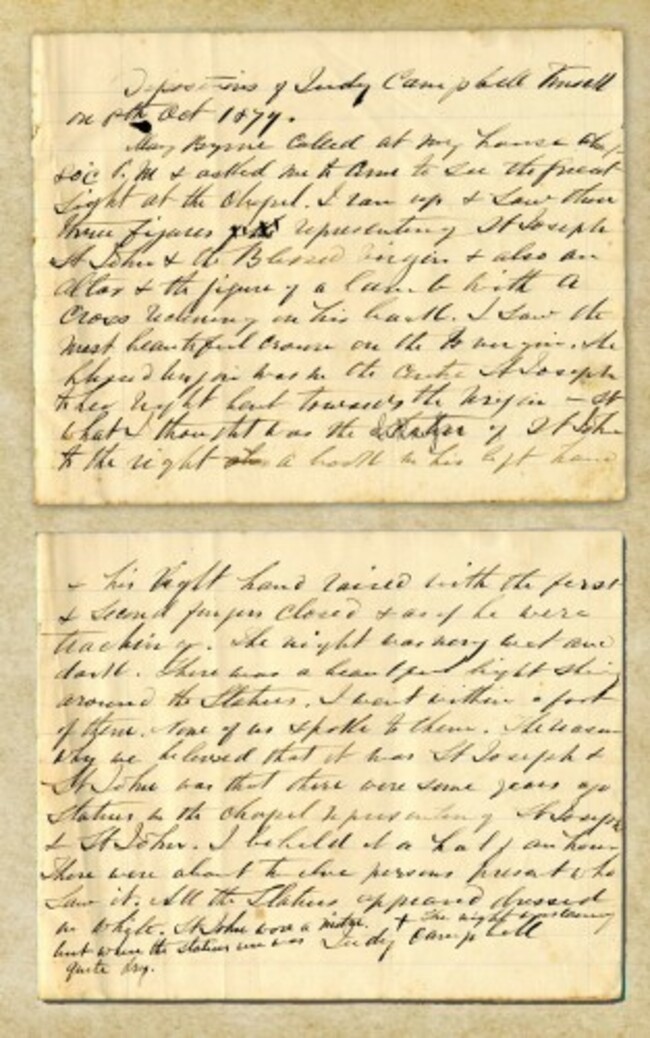 Depositions of Judy Campbell himself
on 8th Oct 1879.
Mary Byrne called at my house about
six P.M & asked me to come to see the great
sight at the chapel. I ran up & saw then
three figures representing St Joseph
St John & the Blessed Virgin & also an
altar & the figure of a lamb with a
cross reclining on his back. I saw the
most beautiful crown on the B Virgin. The
blessed Virgin was in the centre St Joseph
to her right bent towards the Virgin - St
what I thought was the statue of St John
to the right a book in his left hand
- his right hand raised with the first
& second fingers closed & as if he were
teaching. The night was very wet and
dark. There was a beautiful light shining
around the Statues. I went within a foot
of them. None of us spoke to them. The reason
why we believed that it was St Joseph &
St John was that there were some years ago
Statues in the chapel representing St Joseph
& St John. I beheld it a half an hour
There were about twelve persons present who
saw it. All the Statues appeared dressed
in white. St John wore a mitre. + The night was rainy
but where the statues were was Judy Campbell
quite dry.